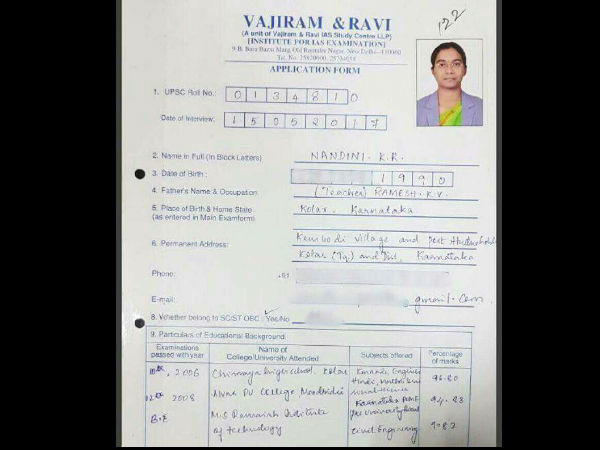 122
VAJIRAM & RAVI
(A unit of Vajiram & Ravi IAS Study Centre LLP)
[INSTITUTE FOR IAS EXAMINATION]
9-B, Bada Bazar Marg, Old Rajinder Nagar, New Delhi-110060
Tel. No. 25820000, 25734058
APPLICATION FORM
1. UPSC Roll No.: 0134810
Date of Interview: 15052017
2. Name in Full (In Block Letters) NANDINI. K.R.
3. Date of Birth: 1990
4. Father's Name & Occupation: (Teacher) RAMESH. K.V.
5. Place of Birth & Home State Kolar, Karnataka
(as entered in Main Examform)
6. Permanent Address: Kembodi village and post
Kolar (Tq.) and Dist, Karnataka
Phone: +91
E-mail: gmail.com
8. Whether belong to SC/ST OBC: Yes/No
9. Particulars of Educational Background
Examinations passed with year Name of College/University Attended Subjects offered Percentage of marks
10th, 2006 Chinmaya high school, Kolar Kannada, English 96.80
Hindi,
12th 2008 PU College Moodbidri Karnataka 94.83
Pre University Board
B.E M.S Ramaiah Institute
of technology Civil Engineering